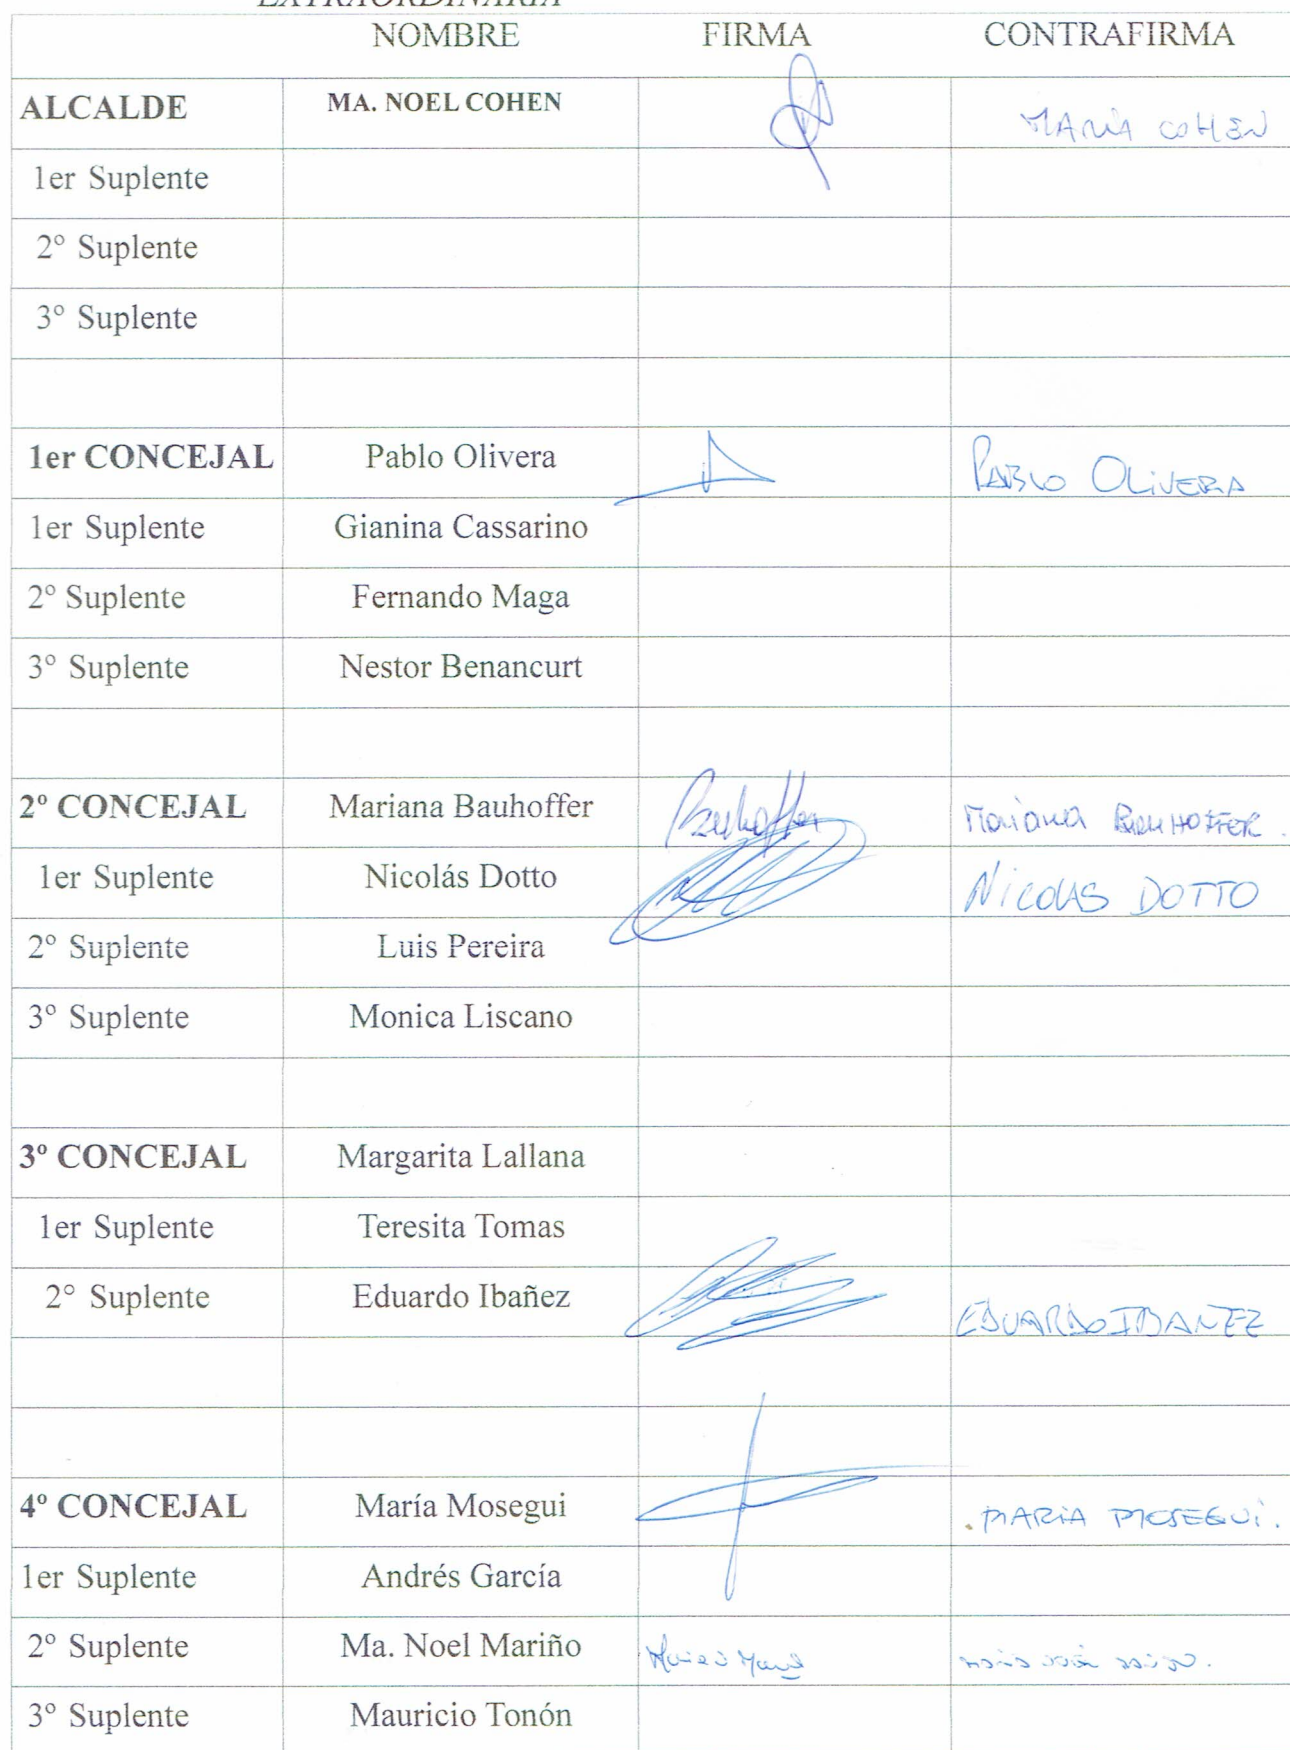 EXTRAORDINARIA
NOMBRE FIRMA CONTRAFIRMA
ALCALDE MA. NOEL COHEN MARIA COHEN
1er Suplente
2º Suplente
3º Suplente
1er CONCEJAL Pablo Olivera PABLO OLIVERA
1er Suplente Gianina Cassarino
2º Suplente Fernando Maga
3º Suplente Nestor Benancurt
2º CONCEJAL Mariana Bauhoffer Bauhoffer Mariana BAUHOFFER.
1er Suplente Nicolás Dotto NICOLAS DOTTO
2º Suplente Luis Pereira
3º Suplente Monica Liscano
3º CONCEJAL Margarita Lallana
1er Suplente Teresita Tomas
2° Suplente Eduardo Ibañez EDUARDO IBANEZ
4º CONCEJAL María Mosegui . MARIA MOSEGUI.
1er Suplente Andrés García
2º Suplente Ma. Noel Mariño
3º Suplente Mauricio Tonón